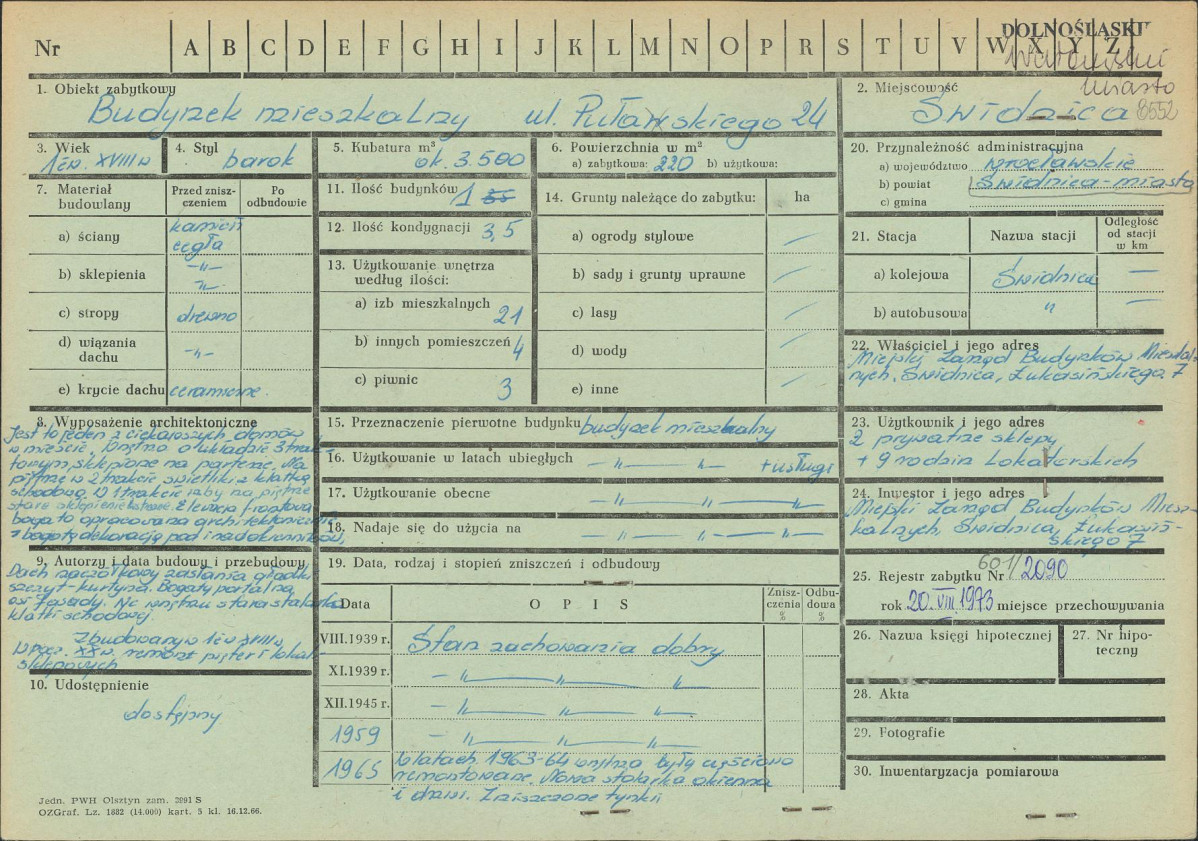 Nr A B C D E F G H I J K L M N O P R S T U V W X Y Z
DOLNOŚLĄSKI
miasto
1. Obiekt zabytkowy
Budynek mieszkalny ul. Pułaskiego 24
2. Miejscowość
Świdnica 8552
3. Wiek
1ćw. XVIII w
4. Styl
barok
5. Kubatura m³
ok. 3.500
6. Powierzchnia w m²
a) zabytkowa: 220 b) użytkowa:
20. Przynależność administracyjna
a) województwo wrocławskie
b) powiat Świdnica-miasto
c) gmina
7. Materiał budowlany
Przed zniszczeniem
Po odbudowie
a) ściany kamień cegła
b) sklepienia -„- -„-
c) stropy drewno
d) wiązania dachu -„-
e) krycie dachu ceramiczne.
11. Ilość budynków 1
12. Ilość kondygnacji 3,5
13. Użytkowanie wnętrza według ilości:
a) izb mieszkalnych 21
b) innych pomieszczeń 4
c) piwnic 3
14. Grunty należące do zabytku: ha
a) ogrody stylowe —
b) sady i grunty uprawne —
c) lasy —
d) wody —
e) inne —
21. Stacja
Nazwa stacji
Odległość od stacji w km
a) kolejowa Świdnica —
b) autobusowa „ —
22. Właściciel i jego adres
Miejski Zarząd Budynków Mieszkal-
nych, Świdnica, Łukasińskiego 7
8. Wyposażenie architektoniczne
Jest to jeden z ciekawszych domów
w mieście. Wnętrze o układzie 3 trak-
towym, sklepione na parterze. Na
piętrze w 2 trakcie świetlik z klatką
schodową. W 1 trakcie izby na piętrze
stare sklepienie Elewacja frontowa
bogato opracowana architektonicznie
z bogatą dekoracją pod i nadokienników,
9. Autorzy i data budowy i przebudowy
Dach naczółkowy zasłania gładki
szczyt-kurtyna. Bogaty portal na
osi fasady. We wnętrzu stara stolarka
klatki schodowej.
Zbudowany w 1ćw XVIII w.
W pocz. XX w. remont pięter i lokali
sklepowych
10. Udostępnienie
dostępny
15. Przeznaczenie pierwotne budynku budynek mieszkalny
16. Użytkowanie w latach ubiegłych — „ — „ — + usługi
17. Użytkowanie obecne — „ — „ — „ —
18. Nadaje się do użycia na — „ — „ — „ —
19. Data, rodzaj i stopień zniszczeń i odbudowy
Data
OPIS
Zniszczenia %
Odbudowa %
VIII.1939 r. Stan zachowania dobry
XI.1939 r. — „ — „ — „
XII.1945 r. — „ — „ — „ —
1959 — „ — „ — „ —
1965 W latach 1963-64 wnętrza były częściowo
remontowane. Nowa stolarka okienna
i drzwi. Zniszczone tynki
23. Użytkownik i jego adres
2 prywatne sklepy
+ 9 rodzin lokatorskich
24. Inwestor i jego adres
Miejski Zarząd Budynków Miesz-
kalnych, Świdnica, Łukasiń-
skiego 7
25. Rejestr zabytku Nr 601/2090
rok 20.VIII.1973 miejsce przechowywania
26. Nazwa księgi hipotecznej
27. Nr hipoteczny
28. Akta
29. Fotografie
30. Inwentaryzacja pomiarowa
Jedn. PWH Olsztyn zam. 2991 S
OZGraf. Lz. 1882 (14.000) kart. 5 kl. 16.12.66.